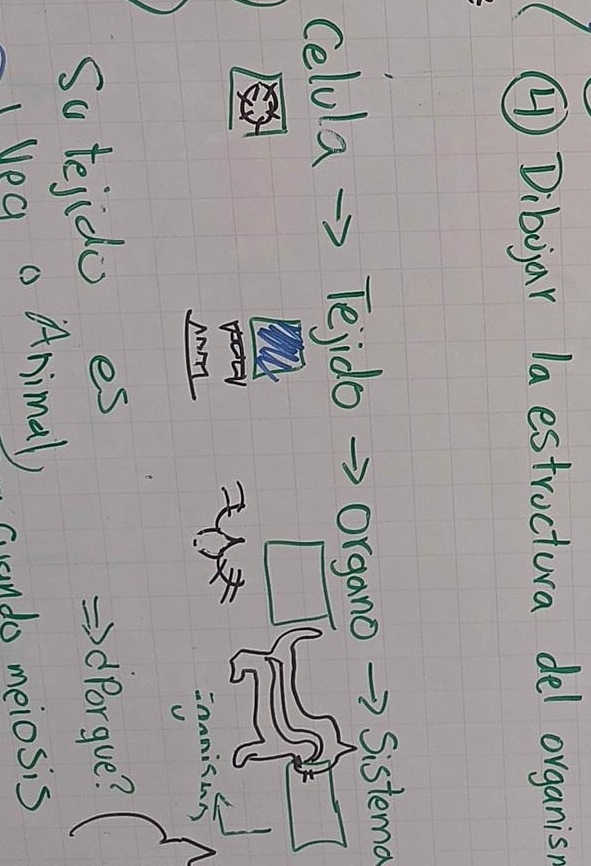 ④ Dibujar la estructura del organism
Celula → Tejido → Organo → Sistema
Su tejido es ⇒ ¿Porque?
Veg o Animal) Cuando meiosis